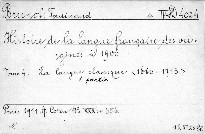 Brunot Ferdinand
Histoire de la langue française des ori-
gines à 1900
Tome 4. La langue classique <1660-1715>
1 partie
Paris 1911 A. Colin